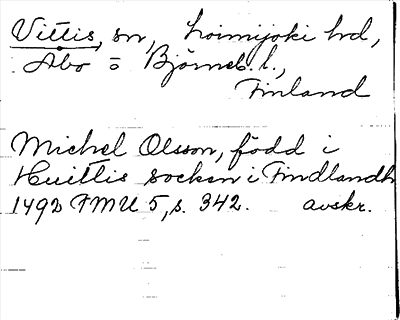 Vittis, sn, Loimijoki hd,
Åbo o Björneb. l.,
Finland
Michel Olsson, född i
Huittis socken i Findlandh
1492 FMU 5, s. 342. avskr.